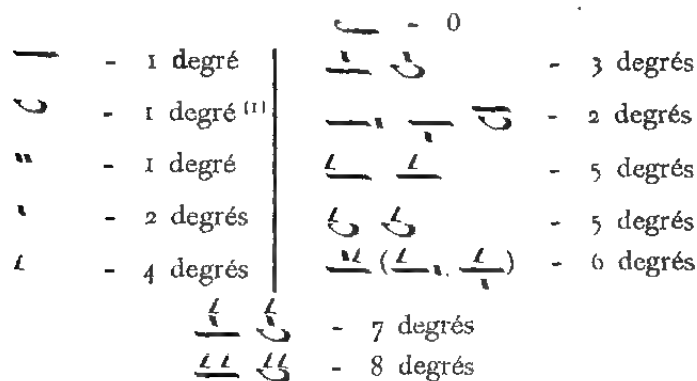 - 0
- 1 degré
- 1 degré (1)
- 1 degré
- 2 degrés
- 4 degrés
- 3 degrés
- 2 degrés
- 5 degrés
- 5 degrés
- 6 degrés
- 7 degrés
- 8 degrés